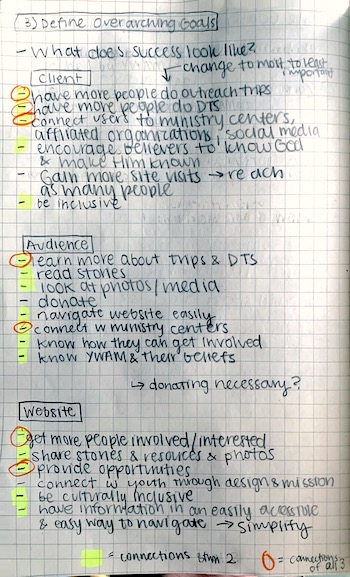 3) Define Overarching Goals
- What does success look like?
change to most to least
important
Client
- have more people do outreach trips
- have more people do DTS
- connect users to ministry centers,
affiliated organizations, social media
- encourage believers to know God
& make Him known
- Gain more site visits → reach
as many people
- be inclusive
Audience
- learn more about trips & DTS
- read stories
- look at photos/media
- donate
- navigate website easily
- connect w ministry centers
- know how they can get involved
- know YWAM & their beliefs
↳ donating necessary?
Website
- get more people involved/interested
- share stories & resources & photos
- provide opportunities
- connect w youth through design & mission
- be culturally inclusive
- have information in an easily accessible
& easy way to navigate → simplify
= connections btwn 2
= connections
of all 3